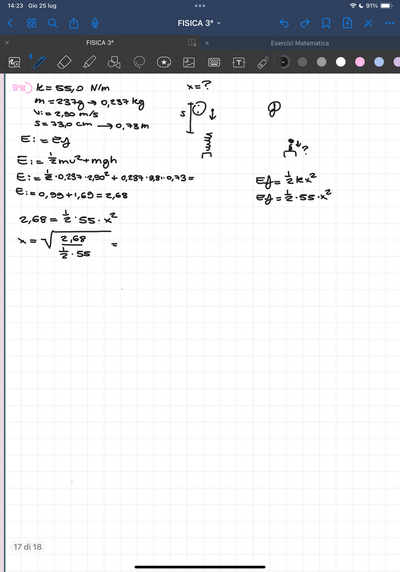 14:23 Gio 25 lug
91%
FISICA 3ª
FISICA 3ª
Esercizi Matematica
88) K = 55,0 N/m
x = ?
m = 237g → 0,237 kg
vi = 2,90 m/s
s = 73,0 cm → 0,73 m
S
?
Ei = Ef
Ei = ½mv² + mgh
Ei = ½ · 0,237 · 2,90² + 0,237 · 9,81 · 0,73 =
Ei = 0,99 + 1,69 = 2,68
Ef = ½ kx²
Ef = ½ · 55 · x²
2,68 = ½ · 55 · x²
x = √ 2,68 / ½ · 55 =
17 di 18